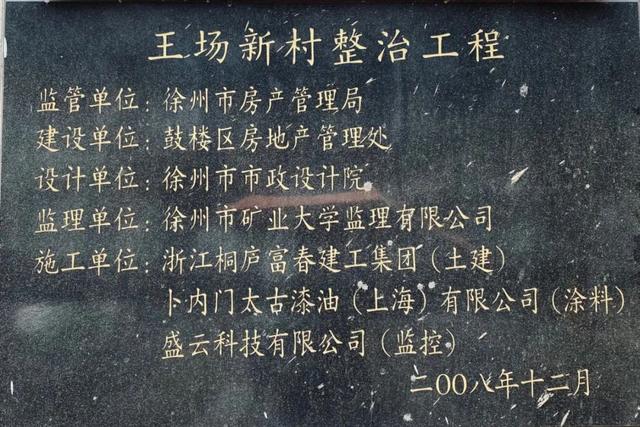 王场新村整治工程
监管单位：徐州市房产管理局
建设单位：鼓楼区房地产管理处
设计单位：徐州市市政设计院
监理单位：徐州市矿业大学监理有限公司
施工单位：浙江桐庐富春建工集团（土建）
卜内门太古漆油（上海）有限公司（涂料）
盛云科技有限公司（监控）
二〇〇八年十二月